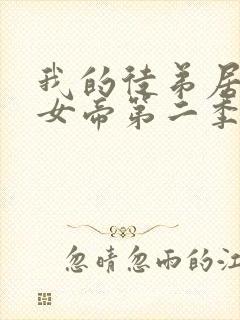 我的徒弟居
女帝第二季
忽晴忽雨的江